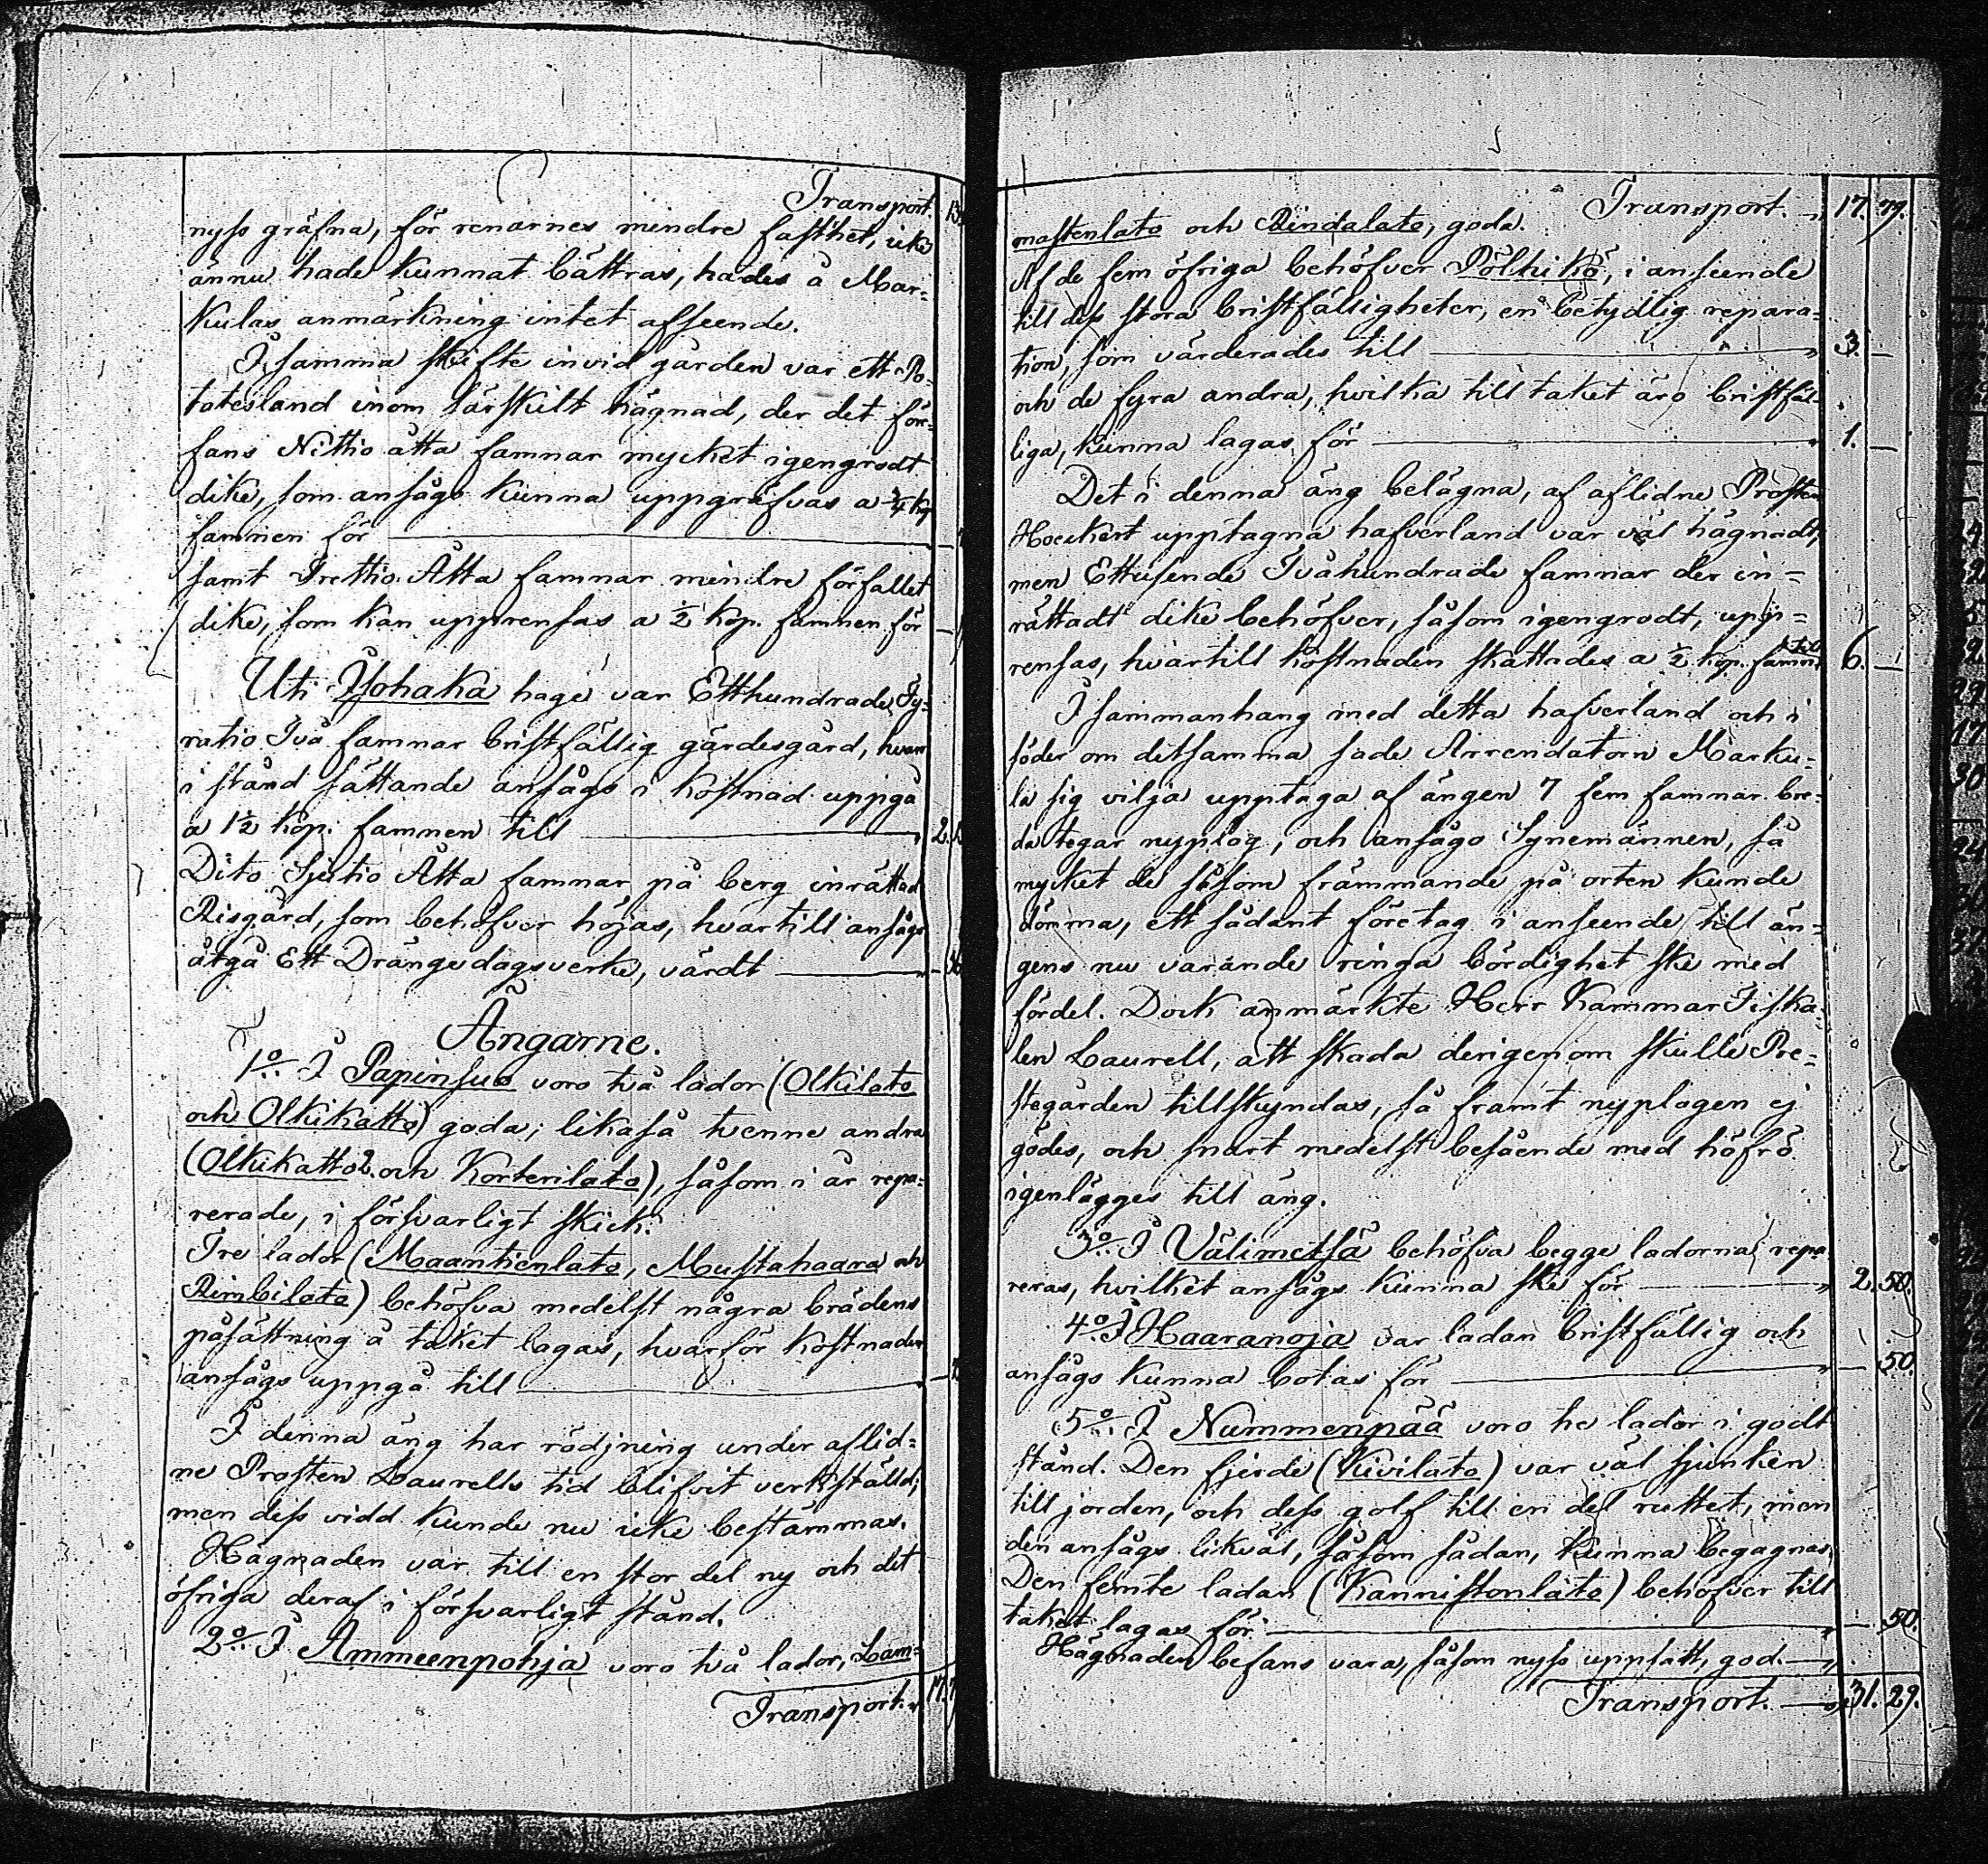 Transport. 13.
nyss gräfna, för renarnes mindre fasthet, icke
ännu hade kunnat bättras, hades å Mar=
kulas anmärkning intet afseende.
I samma skifte invid gården var ett Po=
tatesland inom särskilt hägnad, der det för=
fans Nittio åtta famnar mycket igengrodt
dike, som ansågs kunna uppgräfvas a ¾ kp
famnen för —
samt Trettio Åtta famnar mindre förfallet
dike, som kan upprensas a ½ kop. famnen för —
Uti Yohaka hage var Etthundrade Fy=
ratio Två famnar bristfällig gärdesgård, hvars
i stånd sättande ansågs i kostnad uppgå
a 1½ kop. famnen till — 2.
Dito Sjutio Åtta famnar på berg inrättad
Risgård, som behöfver höjas, hvartill ansågs
åtgå Ett Drängedagsverke, värdt —
Ängarne.
1o. I Papinsuo voro två lador (Olkilato
och Olkikatto) goda; likaså tvenne andra
(Olkikatto 2. och Korterilato), såsom i år repa=
rerade, i försvarligt skick.
Tre lador (Maantienlato, Mustahaara och
Rimbilato) behöfva medelst några brädens
påsättning å taket lagas, hvarför kostnaden
ansågs uppgå till —
I denna äng har rödjning under aflid=
ne Prosten Laurells tid blifvit verkställd;
men dess vidd kunde nu icke bestämmas.
Hägnaden var till en stor del ny och det
öfriga deraf i försvarligt stånd.
2o. I Ammeenpohja voro två lador, Lam=
Transport. 17.
Transport. — 17. 79.
mastenlato och Rindalato, goda.
Af de fem öfriga behöfver Pölkikö, i anseende
till dess stora bristfälligheter, en betydlig repara=
tion, som värderades till — 3. —
och de fyra andra, hvilka till taket äro bristfäl=
liga, kunna lagas för — 1. —
Det i denna äng belägna, af aflidne Prosten
Hoeckert upptagna hafverland var väl hägnadt,
men Ettusende Tvåhundrade famnar der in=
rättadt dike behöfver, såsom igengrodt, upp=
rensas, hvartill kostnaden skattades a ½ kop. famn till 6. —
I sammanhang med detta hafverland och i
söder om detsamma sade Arrendatorn Marku=
la sig vilja upptaga af ängen 7 fem famnar bre=
da tegar nyplog, och ansågo Synemännen, så
mycket de såsom främmande på orten kunde
dömma, ett sådant företag i anseende till än=
gens nu varande ringa bördighet ske med
fördel. Dock anmärkte Herr Kammar Fiska=
len Laurell, att skada derigenom skulle Pre=
stegården tillskyndas, så framt nyplogen ej
gödes, och snart medelst besående med höfrö
igenlägges till äng.
3o. I Välimetsä behöfva begge ladorna repa=
reras, hvilket ansågs kunna ske för — 2. 50.
4o. I Haaranoja var ladan bristfällig och
ansågs kunna botas för — — 50.
5o. I Nummenpää voro tre lador i godt
stånd. Den fjerde (Kivilato) var väl sjunken
till jorden, och dess golf till en del ruttet, men
den ansågs likväl, såsom sådan, kunna begagnas.
Den femte ladan (Kannistonlato) behöfver till
taket lagas för — — 50.
Hägnaden befans vara, såsom nyss uppsatt, god. —
Transport. — 31. 29.